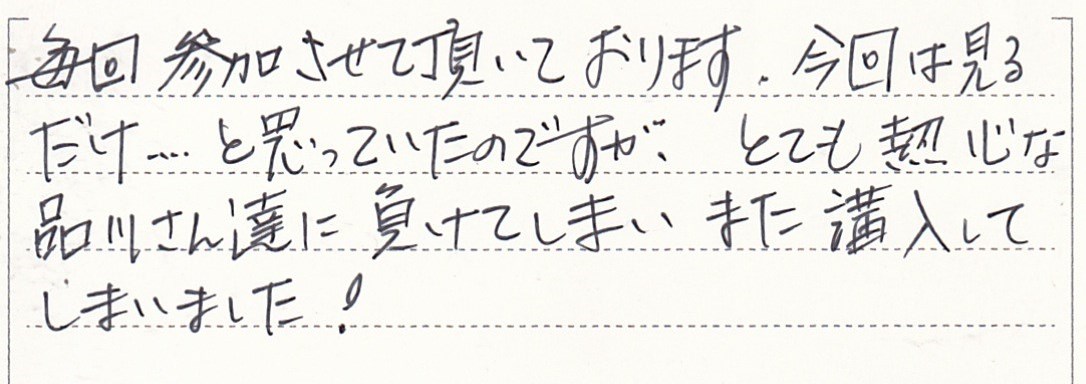 毎回参加させて頂いております。今回は見る
だけ....と思っていたのですが、とても熱心な
品川さん達に負けてしまいまた講入して
しまいました!